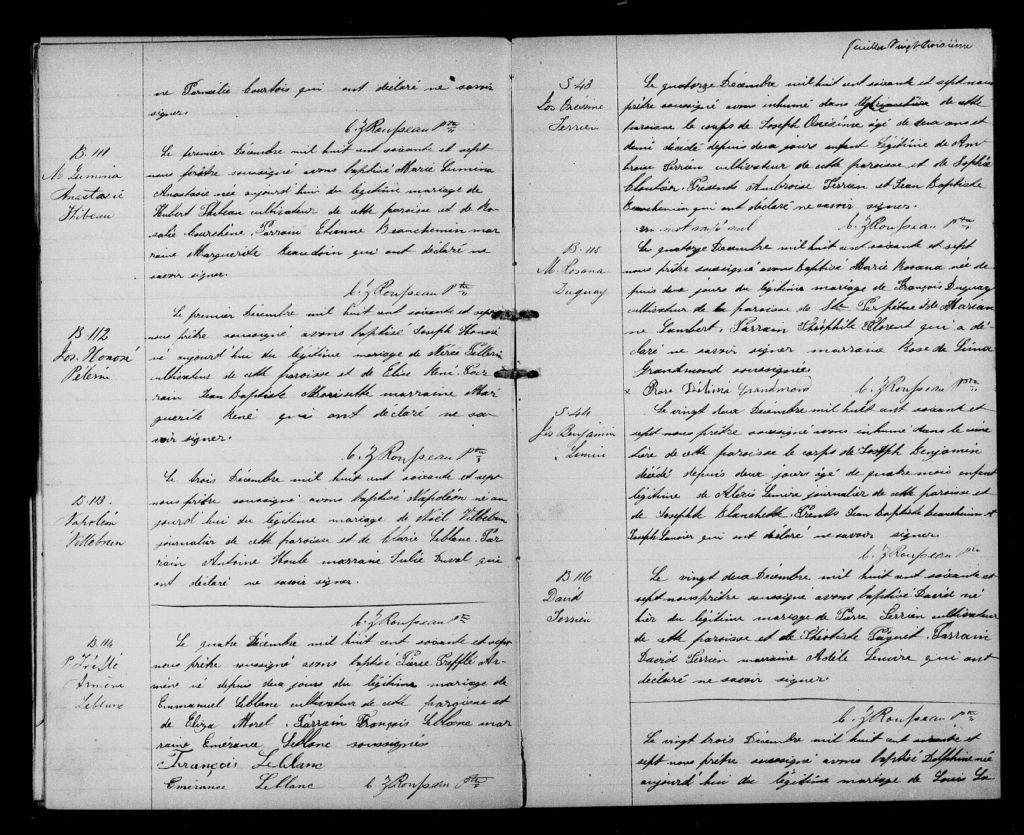 ne Parmélie Courtois qui ont déclaré ne savoir
signer.
C. Z. Rousseau Ptre
B. 111
M. Lumina
Anastasie
Thibeau
Le premier Décembre mil huit cent soixante et sept
nous prêtre soussigné avons baptisé Marie Lumina
Anastasie née aujourd'hui du légitime mariage de
Hubert Thibeau cultivateur de cette paroisse et de Ro-
salie Courchène. Parrain Etienne Beauchemin mar
raine Marguerite Beaudoin qui ont déclaré ne
savoir signer.
C. Z. Rousseau Ptre
B 112
Jos. Honoré
Pélerin
Le premier Décembre mil huit cent soixante et sept
nous prêtre soussigné avons baptisé Joseph Honoré
né aujourd'hui du légitime mariage de Nérée Pellerin
cultivateur de cette paroisse et de Elise René. Par-
rain Jean Baptiste Morissette marraine Mar
guerite René qui ont déclaré ne sa-
voir signer.
C. Z. Rousseau Ptre
B 113.
Napoléon
Villebrun
Le trois Décembre mil huit cent soixante et sept
nous prêtre soussigné avons baptisé Napoléon né au
jourd'hui du légitime mariage de Noël Villebrun
journalier de cette paroisse et de Marie Leblanc. Par
rain Antoine Houle marraine Julie Duval qui
ont déclaré ne savoir signer.
C. Z. Rousseau Ptre
B. 114
P. Trefflé
Arméné
Leblanc
Le quatre Décembre mil huit cent soixante et sept
nous prêtre soussigné avons baptisé Pierre Trefflé Ar-
méné né depuis deux jours du légitime mariage de
Emmanuel Leblanc cultivateur de cette paroisse et
de Eliza Morel. Parrain François Leblanc mar
raine Emérance Leblanc soussignés
François Leblanc
Emérance Leblanc C. Z. Rousseau Ptre
feuillet Vingt-troisième
S 43
Jos Onesime
Terrien
Le quatorze Décembre mil huit cent soixante et sept nous
prêtre soussigné avons inhumé dans le cimetière de cette
paroisse le corps de Joseph Onésime âgé de deux ans et
demi décédé depuis deux jours enfant légitime de Am-
broise Terrien cultivateur de cette paroisse et de Sophie
Cloutier. Présents Ambroise Terrien et Jean Baptiste
Beauchemin qui ont déclaré ne savoir signer.
un mot rayé nul C. Z. Rousseau Ptre
B. 115
M. Rosana
Duguay
Le quatorze Décembre mil huit cent soixante et sept
nous prêtre soussigné avons baptisé Marie Rosana née de
puis deux jours du légitime mariage de François Duguay
cultivateur de la paroisse de Ste Perpétue et de Marian
ne Lambert. Parrain Théophile Florent qui a dé-
claré ne savoir signer marraine Rose de Lima
Grandmond soussignée
x Rose Délima Grandmond C. Z. Rousseau Ptre
S. 44
Jos Benjamin
Lemire
Le vingt deux Décembre mil huit cent soixante et
sept nous prêtre soussigné avons inhumé dans le cime
tière de cette paroisse le corps de Joseph Benjamin
décédé depuis deux jours âgé de quatre mois enfant
légitime de Alexis Lemire journalier de cette paroisse et
de Josephte Blanchette. Présents Jean Baptiste Beauchemin et
Joseph Lauzier qui ont déclaré ne savoir signer.
C. Z. Rousseau Ptre
B 116
David
Terrien
Le vingt deux Décembre mil huit cent soixante et
sept nous prêtre soussigné avons baptisé David né
hier du légitime mariage de Pierre Terrien cultivateur
de cette paroisse et de Théotiste Poignet. Parrain
David Terrien marraine Adèle Lemire qui ont
déclaré ne savoir signer.
C. Z. Rousseau Ptre
Le vingt trois Décembre mil huit cent soixante et
sept nous prêtre soussigné avons baptisé Delphine née
aujourd'hui du légitime mariage de Louis La